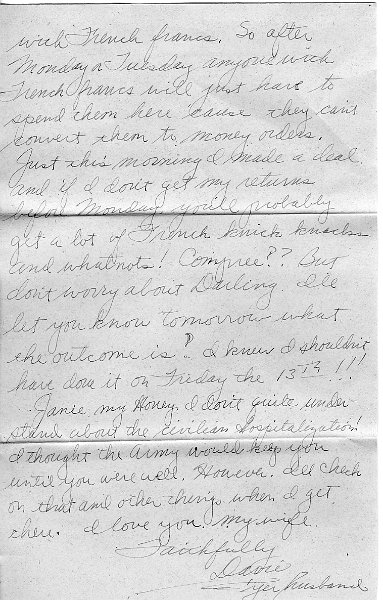 with French francs. So after
Monday or Tuesday anyone with
French francs will just have to
spend them here 'cause they can't
convert them to money orders.
Just this morning I made a deal,
and if I don't get my returns
before Monday, you'll probably
get a lot of French knick knacks
and whatnots! Compree?? But
don't worry about Darling. I'll
let you know tomorrow what
the outcome is? I knew I shouldn't
have done it on Friday the 13th!!!
Janie my Honey, I don't quite under
stand about the civilian hospitalization!
I thought the Army would keep you
until you were well. However. I'll check
on that and other things when I get
there. I love you my wife.
Faithfully
Davie
husband